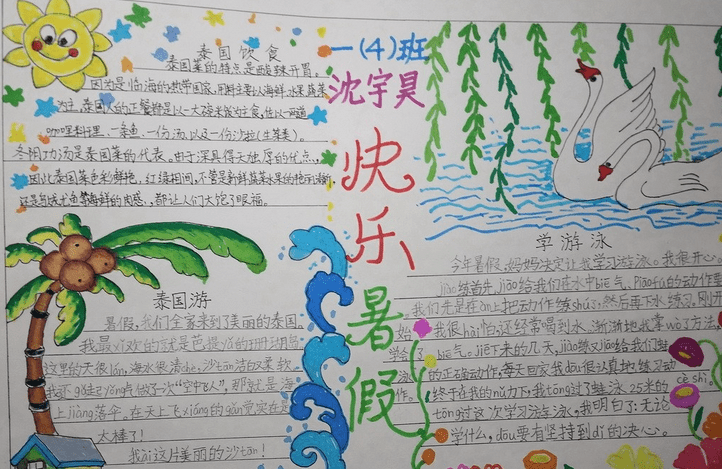 泰国饮食
泰国菜的特点是酸辣开胃。
因为是临海的热带国家,用料主要以海鲜 水果 蔬菜
为主。泰国人的正餐都是以一大碗米饭为主食,佐以一两道
咖哩料理、一条鱼、一份汤、以及一份沙拉(生菜类)。
冬阴功汤是泰国菜的代表。由于深具得天独厚的优点,
因此泰国菜色彩鲜艳,红绿相间,不管是新鲜蔬菜水果的艳
还是 海鲜的肉感,都让人们大饱了眼福。
一(4)班
沈宇昊
快乐暑假
泰国游
暑假,我们全家来到了美丽的泰国。
我最xǐ欢的就是芭提yǎ的珊瑚岛
这里的天很lán,海水很清chè,沙tān洁白柔软。
我还 yǒng点做了一次“空中飞人”,那就是海
上jiàng落伞,在天上飞xiáng的gǎn觉实在是
太棒了!
我ài这片美丽的沙tān!
学游泳
今年暑假,妈妈决定让我学习游泳。我很开心。
jiāo练首先jiāo给我们在水中biē气、piāofú的动作要
我们先是在àn上把动作练shú,然后再下水练习。刚开
始 我很hài怕,还经常喝到水,渐渐地我掌wò了方法,
学会了biē气。jiē下来的几天,jiāo练又jiāo给我们蛙
泳的正确动作,每天回家我dōu很认真地练习动
作。终于在我的nǔ力下,我tōng过了蛙泳25米的cè shì。
tōng过这次学习法蛙泳,我明白了:无论
学什么,dōu要有坚持到dǐ的决心。